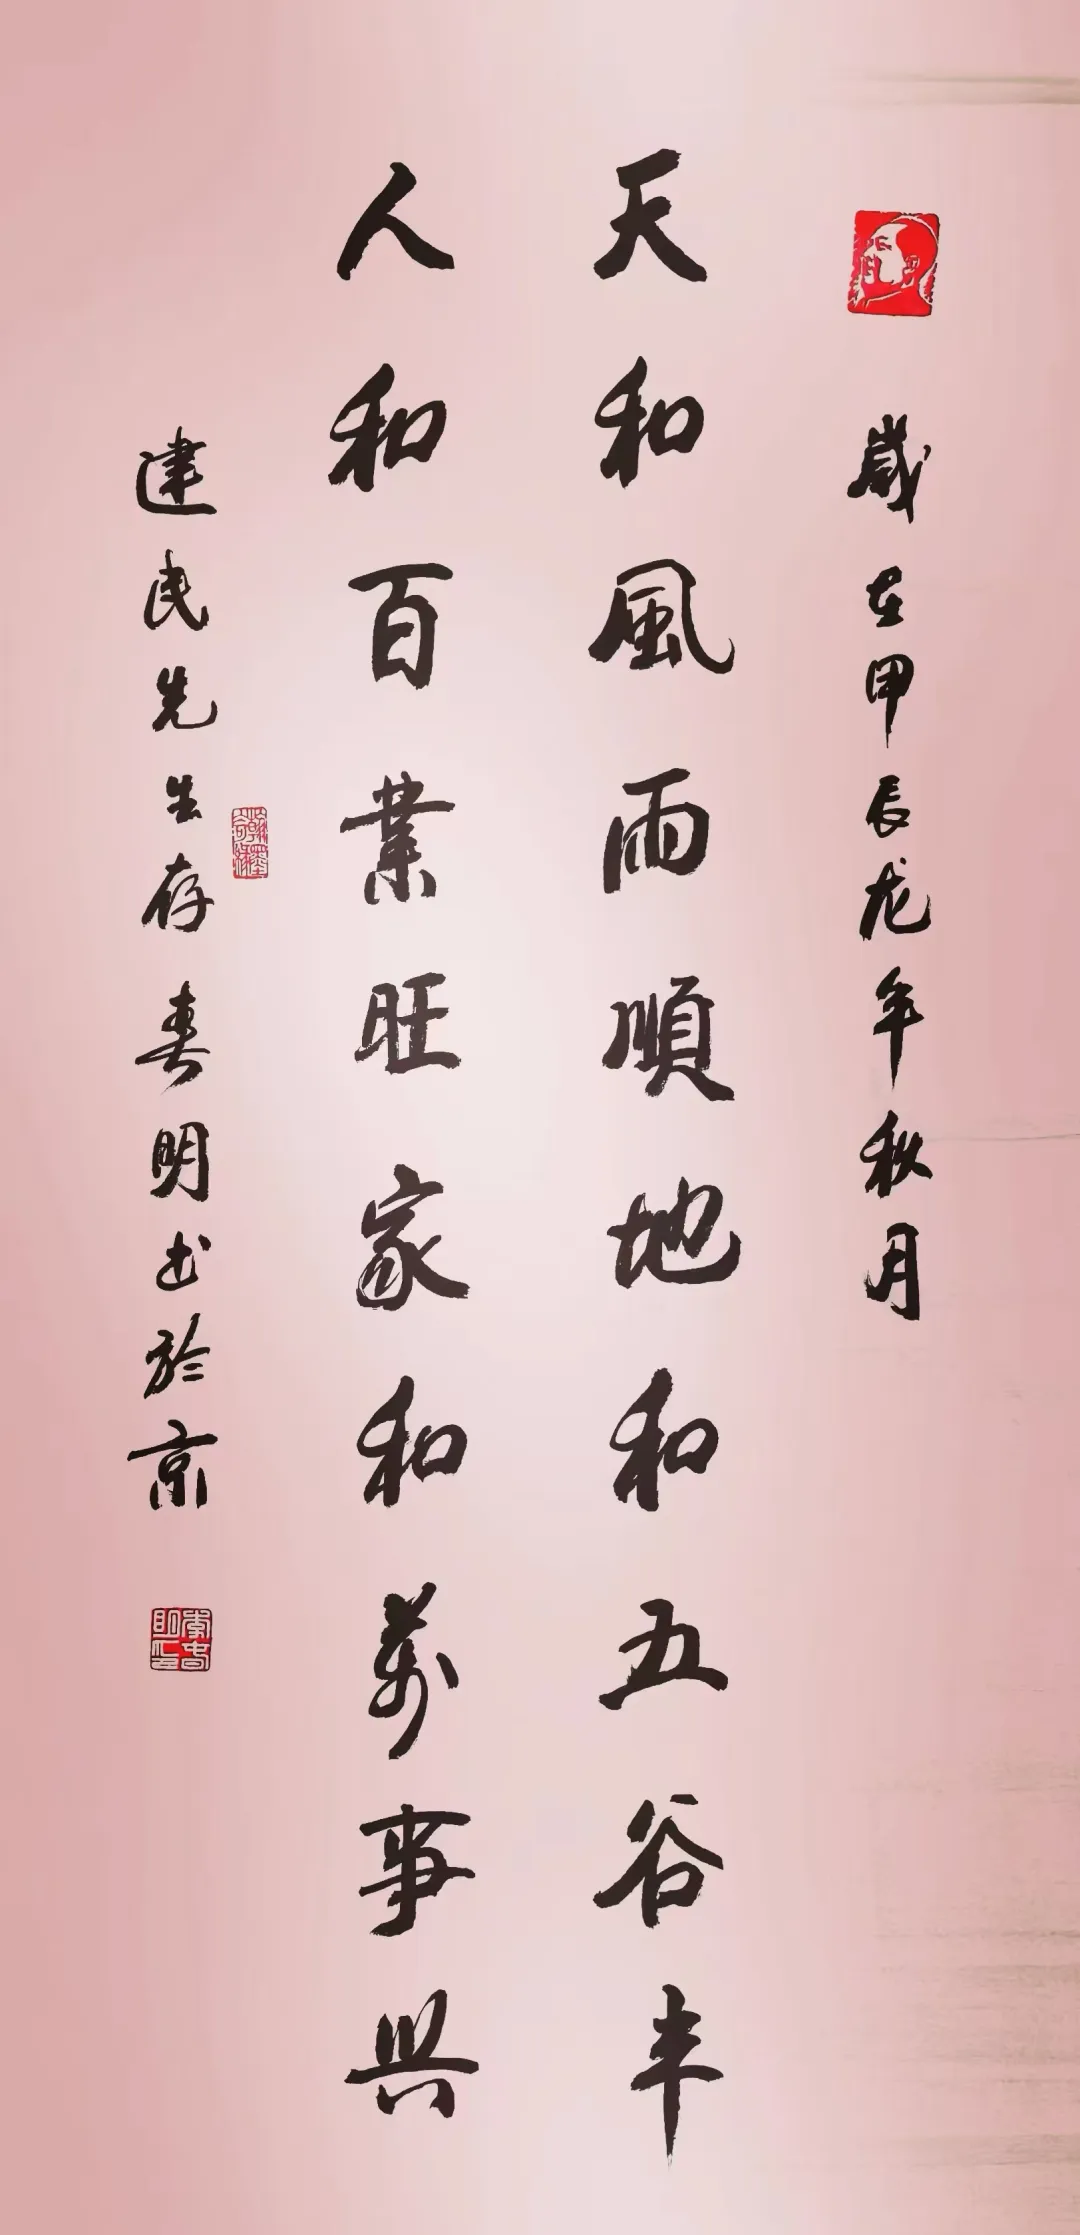 歲在甲辰龙年秋月
天和風雨順地和五谷丰
人和百業旺家和萬事興
建民先生存春明书於京